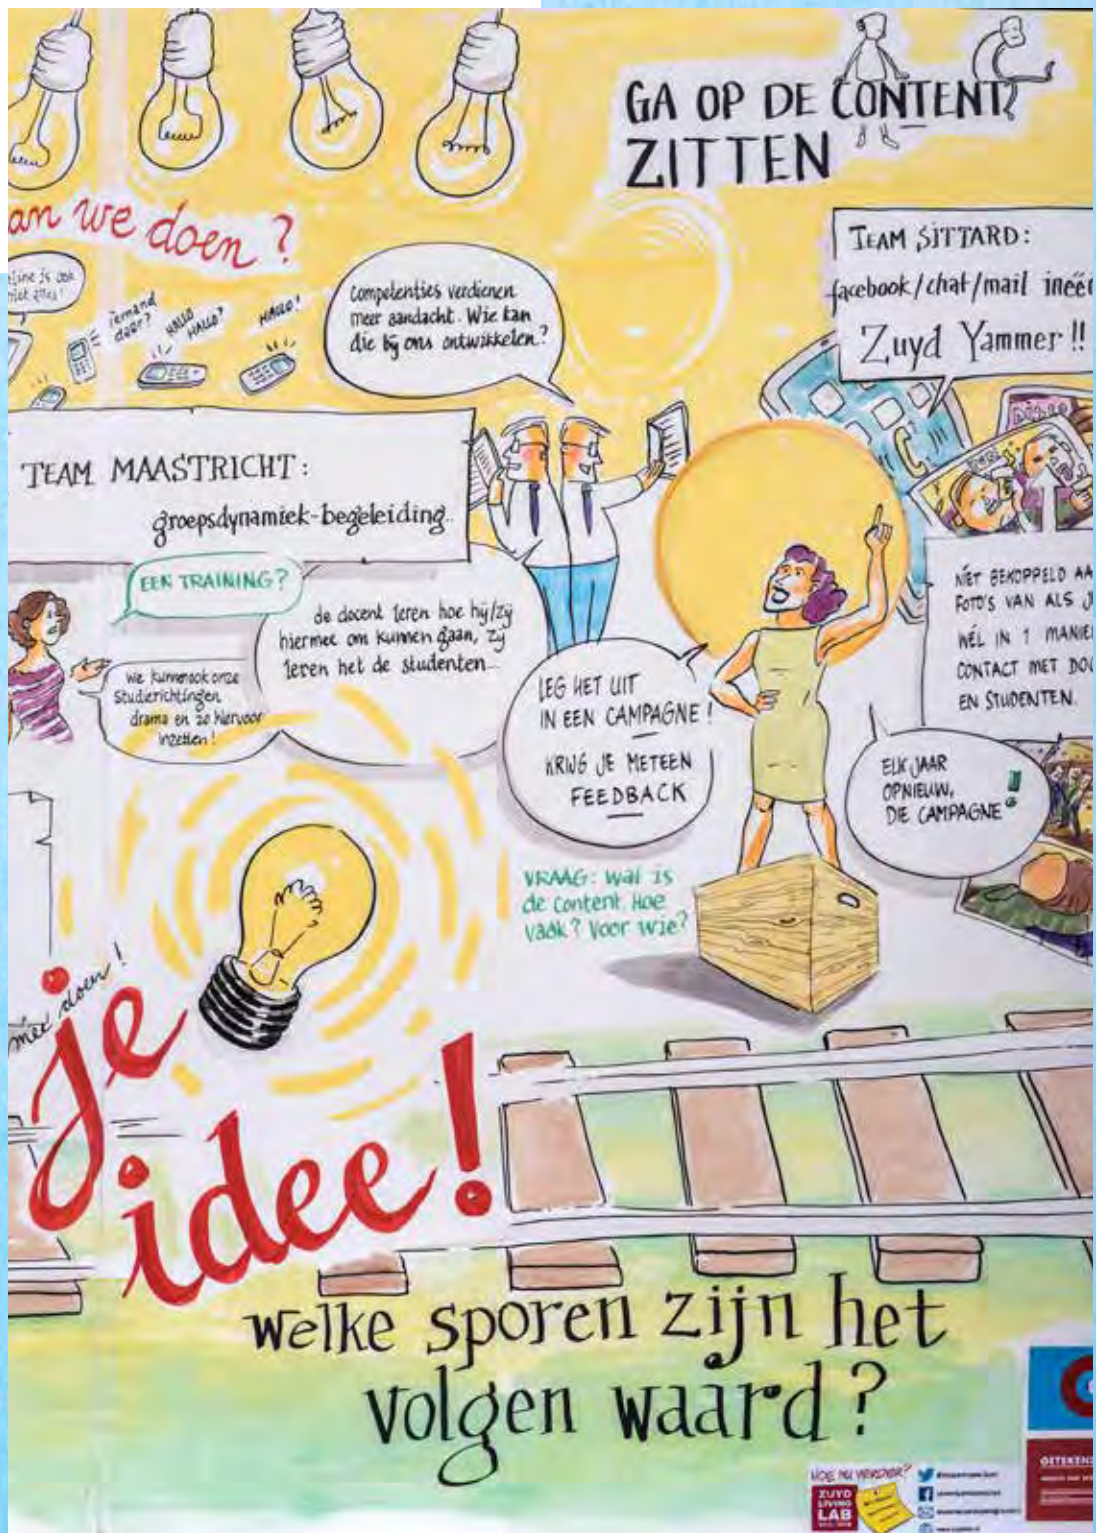 GA OP DE CONTENT
ZITTEN
an we doen?
TEAM SITTARD:
facebook/chat/mail ineen
Zuyd Yammer!!
line is ook
niet alles!
iemand
daar?
HALLO
HALLO?
HALLO!
Competenties verdienen
meer aandacht. Wie kan
die bij ons ontwikkelen?
TEAM MAASTRICHT:
groepsdynamiek-begeleiding..
EEN TRAINING?
de docent leren hoe hij/zij
hiermee om kunnen gaan, zij
leren het de studenten...
We kunnen ook onze
Studierichtingen
drama en zo hiervoor
inzetten!
LEG HET UIT
IN EEN CAMPAGNE!
KRIJG JE METEEN
FEEDBACK
NIET GEKOPPELD AA
FOTO'S VAN ALS J
WÉL IN 1 MANIE
CONTACT MET DO
EN STUDENTEN.
ELK JAAR
OPNIEUW,
DIE CAMPAGNE!
VRAAG: Wat is
de content. Hoe
vaak? Voor wie?
mee doen!
je
idee!
Welke sporen zijn het
volgen waard?
HOE NU VERDER?
ZUYD
LIVING
LAB
GETEKEND